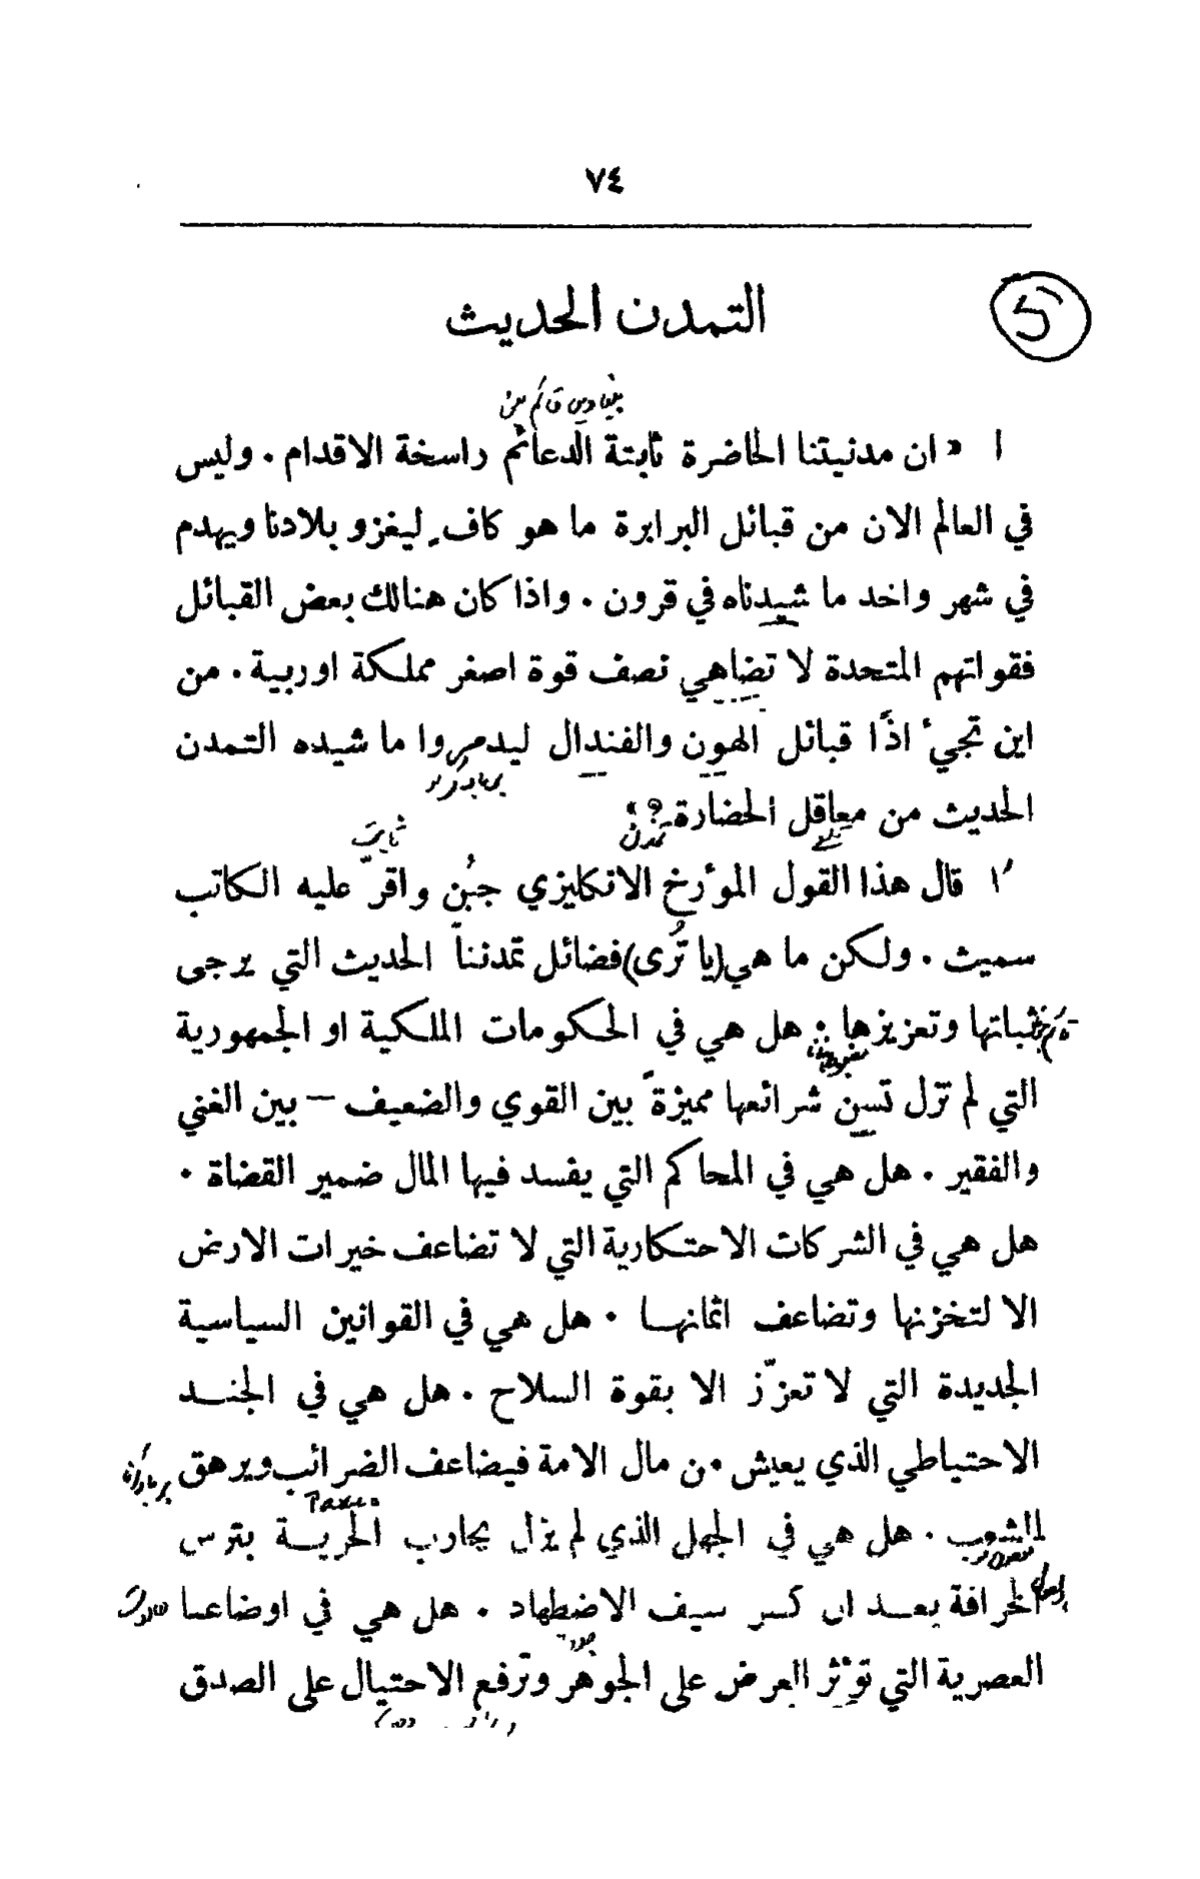 ٧٤
التمدن الحديث
5
١ « ان مدنيتنا الحاضرة ثابتة الدعائم راسخة الاقدام . وليس
في العالم الان من قبائل البرابرة ما هو كافٍ ليغزو بلادنا ويهدم
في شهر واحد ما شيدناه في قرون . واذا كان هنالك بعض القبائل
فقواتهم المتحدة لا تضاهي نصف قوة اصغر مملكة اوربية . من
اين تجيء اذًا قبائل الهون والفندال ليدمروا ما شيده التمدن
الحديث من معاقل الحضارة ؟ »
قال هذا القول المؤرخ الانكليزي جبُن واقرّ عليه الكاتب
سميث . ولكن ما هي (يا تُرى) فضائل تمدننا الحديث التي يرجى
ثباتها وتعزيزها . هل هي في الحكومات الملكية او الجمهورية
التي لم تزل تسن شرائعها مميزةً بين القوي والضعيف – بين الغني
والفقير . هل هي في المحاكم التي يفسد فيها المال ضمير القضاة .
هل هي في الشركات الاحتكارية التي لا تضاعف خيرات الارض
الا لتخزنها وتضاعف اثمانها . هل هي في القوانين السياسية
الجديدة التي لا تعزّز الا بقوة السلاح . هل هي في الجند
الاحتياطي الذي يعيش من مال الامة فيضاعف الضرائب ويرهق
الشعوب . هل هي في الجهل الذي لم يزل يحارب الحرية بترس
الخرافة بعد ان كسر سيف الاضطهاد . هل هي في اوضاعنا
العصرية التي تؤثر العرض على الجوهر وترفع الاحتيال على الصدق